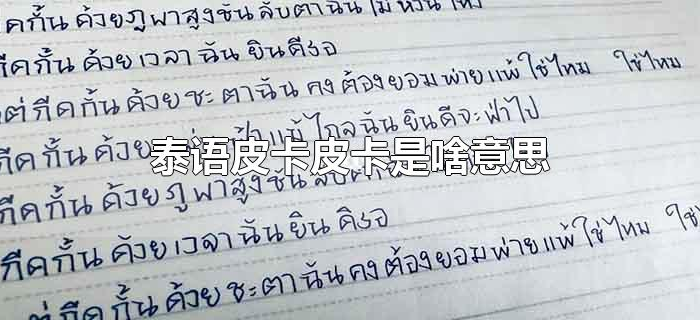 คกั้น ด้วยภูผาสูงชัน ลับตาฉัน ไม่
กีดกั้น ด้วย เวลา ฉัน ยินดีรอ
ต่ กีดกั้น ด้วย ชะตาฉัน คง ต้องยอม พ่ายแพ้ ใช่ไหม ใช่ไหม
กีดกั้น ด้วย ฟ้า แม้ ไกล ฉัน ยินดีจะ ฝ่าไป
泰语皮卡皮卡是啥意思
กีดกั้น ด้วย ภูผาสูงชัน
กีดกั้น ด้วย เวลา ฉัน ยิน ดีรอ
ต่ กีดกั้น ด้วย ชะตาฉัน คง ต้องยอม พ่ายแพ้ ใช่ไหม ใช่